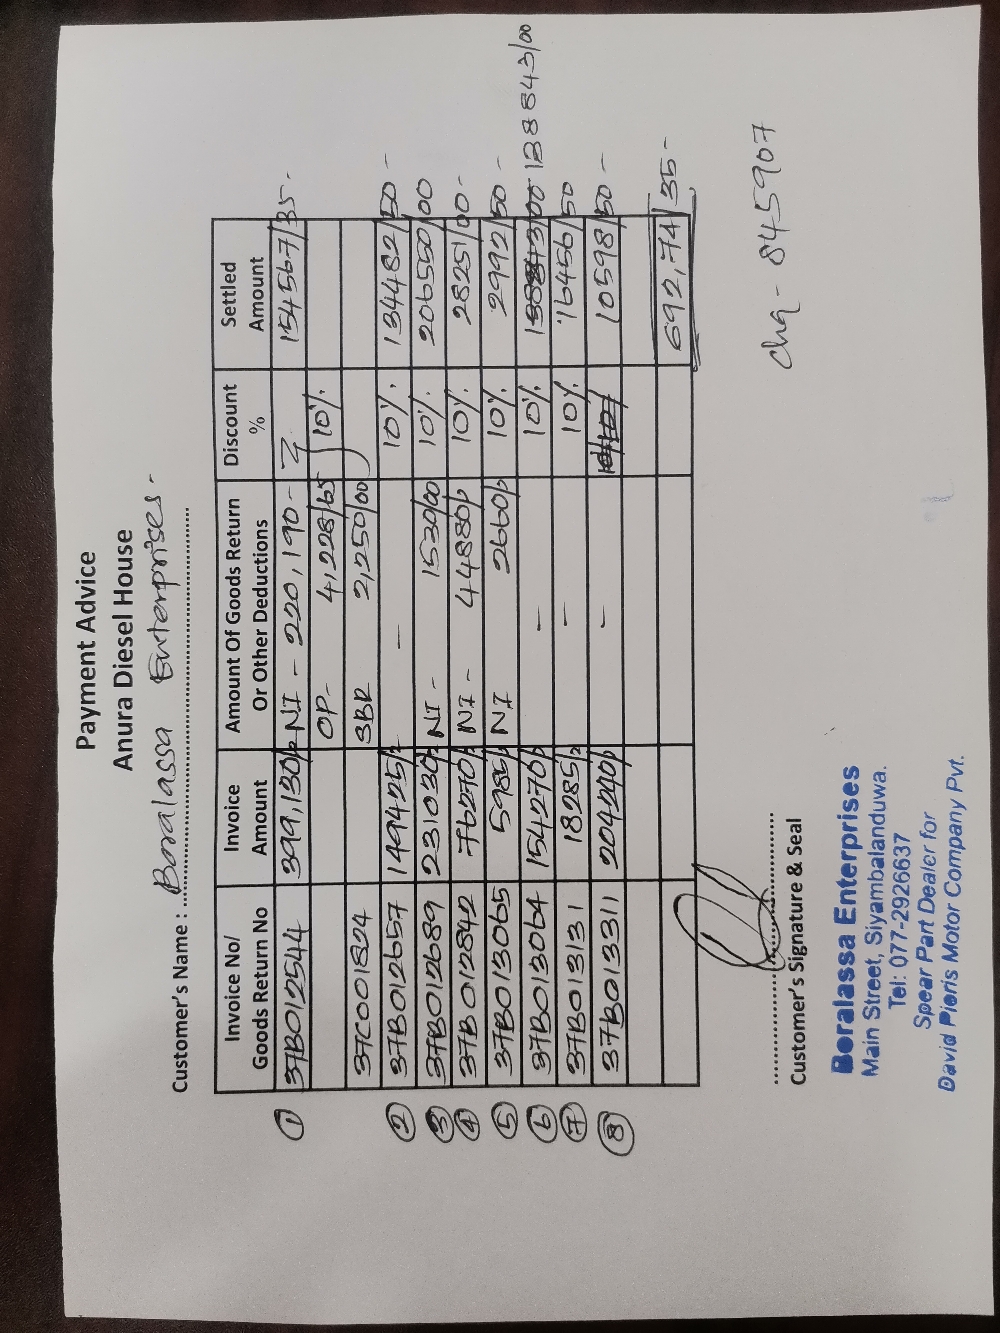 Payment Advice
Anura Diesel House
Customer's Name : Boralassa Enterprises-
Invoice No/ Goods Return No Invoice Amount Amount Of Goods Return Or Other Deductions Discount % Settled Amount
① 37B012544 399,130/- NI - 220,190 - 154567/35-
OP- 4,228/65 10%
37C001824 SBR 2,250/00
② 37B012657 149425/- - 10%. 134482/50 -
③ 37B012689 231030/- NI - 1530/00 10%. 206550/00
④ 37B012842 76270/- NI - 44880/- 10%. 28251/00-
⑤ 37B013065 5985/- NI 2660/- 10%. 2992/50 -
⑥ 37B013064 154270/- - 10%. 138843/00
⑦ 37B013131 18285/- - 10%. 16456/50
⑧ 37B013311 - 10598/50 -
692,74/35-
chq - 845907
Customer's Signature & Seal
Boralassa Enterprises
Main Street, Siyambalanduwa.
Tel: 077-2926637
Spear Part Dealer for
David Pieris Motor Company Pvt.